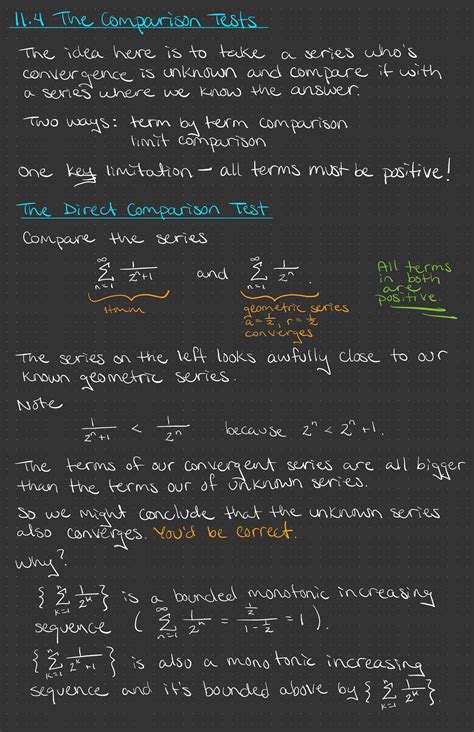 11.4 The Comparison Tests
The idea here is to take a series who's
convergence is unknown and compare it with
a series where we know the answer.
Two ways: term by term comparison
limit comparison
One key limitation — all terms must be positive!
The Direct Comparison Test
Compare the series
∞ ∑ n=1 1/(2^n+1) and ∞ ∑ n=1 1/2^n.
Hmm
geometric series
a = 1/2, r = 1/2
converges
All terms
in both
are
positive.
The series on the left looks awfully close to our
known geometric series.
Note
1/(2^n+1) < 1/2^n because 2^n < 2^n+1.
The terms of our convergent series are all bigger
than the terms our of unknown series.
So we might conclude that the unknown series
also converges. You'd be correct.
Why?
{ n ∑ k=1 1/2^k } is a bounded monotonic increasing
sequence ( ∞ ∑ n=1 1/2^n = (1/2)/(1-1/2) = 1 ).
{ n ∑ k=1 1/(2^k+1) } is also a monotonic increasing
sequence and it's bounded above by { n ∑ k=1 1/2^k }.